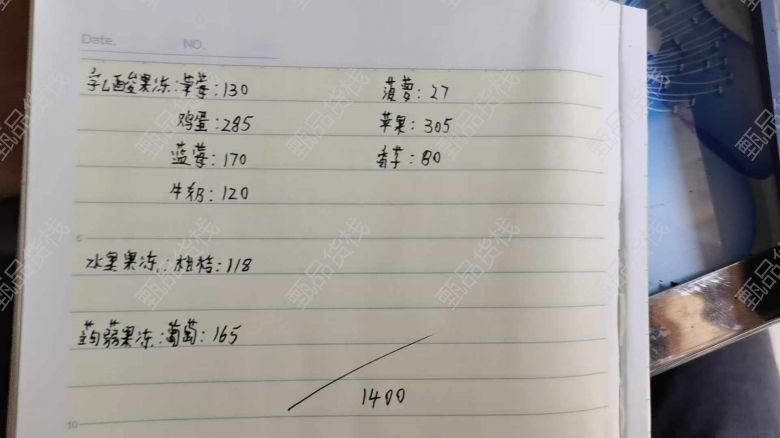 Date. NO.
乳酸果冻:草莓:130 菠萝:27
鸡蛋:285 苹果:305
蓝莓:170 香芋:80
牛奶:120
5
水果果冻:柑桔:118
蒟蒻果冻:葡萄:165
1400
10
甄品货栈